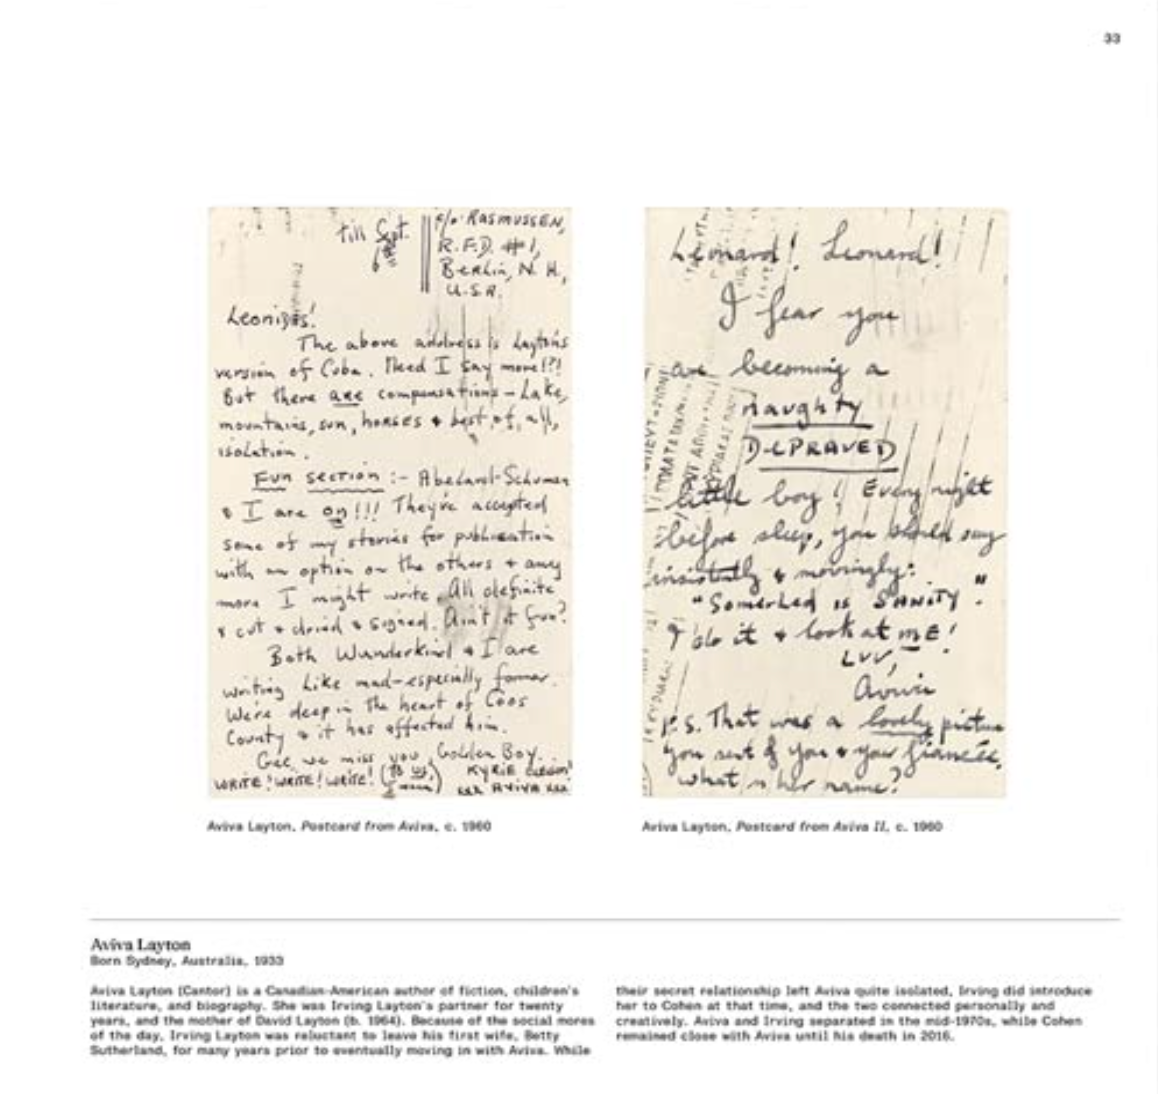 33
till Sept.
c/o RASMUSSEN,
R.F.D. #1,
Berlin, N.H.,
U.S.A.
The above address is Layton's
version of Cuba. Need I say more!?!
But there are compensations – Lake,
mountains, sun, horses & best of, all,
isolation.
Fun section :- Abelard-Schuman
& I are on!!! They've accepted
some of my stories for publication
with an option on the others & any
more I might write. All definite
& cut & dried & signed. Ain't it fun?
Both Wunderkind & I are
writing like mad–especially former.
We're deep in the heart of Coos
County & it has affected him.
Gee, we miss you, Golden Boy.
WRITE! WRITE! WRITE! (to us,
KYRIE
xxx AVIVA xxx
Aviva Layton, Postcard from Aviva, c. 1960
Leonard! Leonard!
I fear you
are becoming a
naughty
DEPRAVED
little boy! Every night
before sleep, you should say
& movingly:
"Somerled is SANITY."
I do it & look at ME!
Luv,
Aviva
P.S. That was a lovely picture
you sent of you & your fiancée,
what is her name?
Aviva Layton, Postcard from Aviva II, c. 1960
Aviva Layton
Born Sydney, Australia, 1933
Aviva Layton (Cantor) is a Canadian-American author of fiction, children's
literature, and biography. She was Irving Layton's partner for twenty
years, and the mother of David Layton (b. 1964). Because of the social mores
of the day, Irving Layton was reluctant to leave his first wife, Betty
Sutherland, for many years prior to eventually moving in with Aviva. While
their secret relationship left Aviva quite isolated, Irving did introduce
her to Cohen at that time, and the two connected personally and
creatively. Aviva and Irving separated in the mid-1970s, while Cohen
remained close with Aviva until his death in 2016.